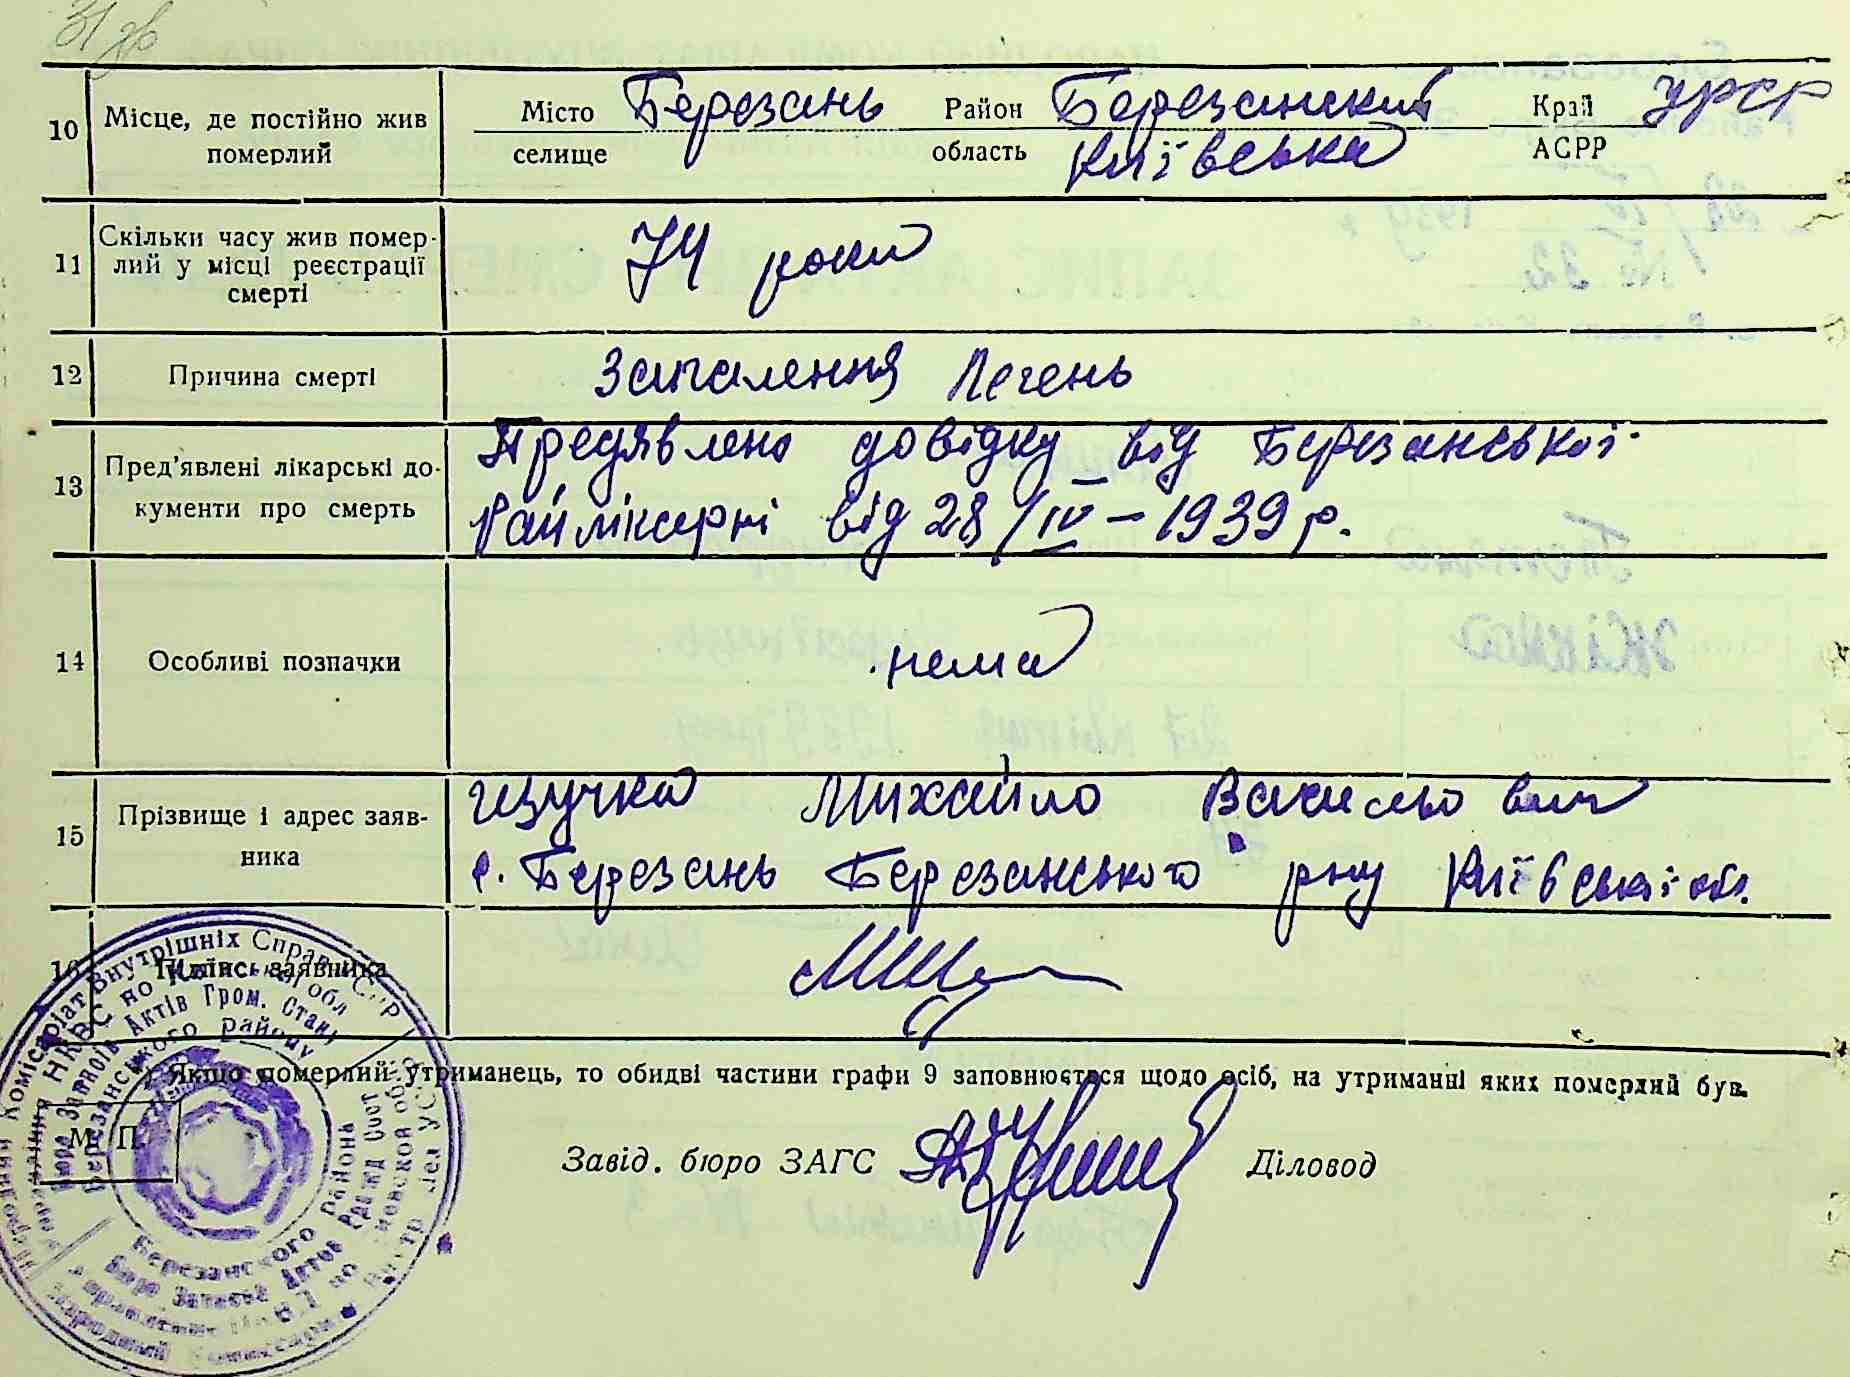 31 зв
10
Місце, де постійно жив
померлий
Місто Березань Район Березанский Край УРСР
селище область Київська АСРР
11
Скільки часу жив помер-
лий у місці реєстрації
смерті
74 роки
12
Причина смерті
Запалення Легень
13
Пред'явлені лікарські до-
кументи про смерть
Предявлено довідку від Березанської
Райлікарні від 28/IV – 1939 р.
14
Особливі позначки
нема
15
Прізвище і адрес заяв-
ника
Михайло Васильович
с. Березань Березанського рну Київської обл.
16
Підпис заявника
Якщо померлий утриманець, то обидві частини графи 9 заповнюється щодо осіб, на утриманні яких померлий був.
М. П.
Завід. бюро ЗАГС Діловод
Комісаріат Внутрішніх Справ
НКВС по Київській обл
Бюро Записів Актів Гром. Стану
Березанського району
Березанского района
Бюро Записей Актов Гражд Сост
Народный Комиссариат Внутр Дел УССР